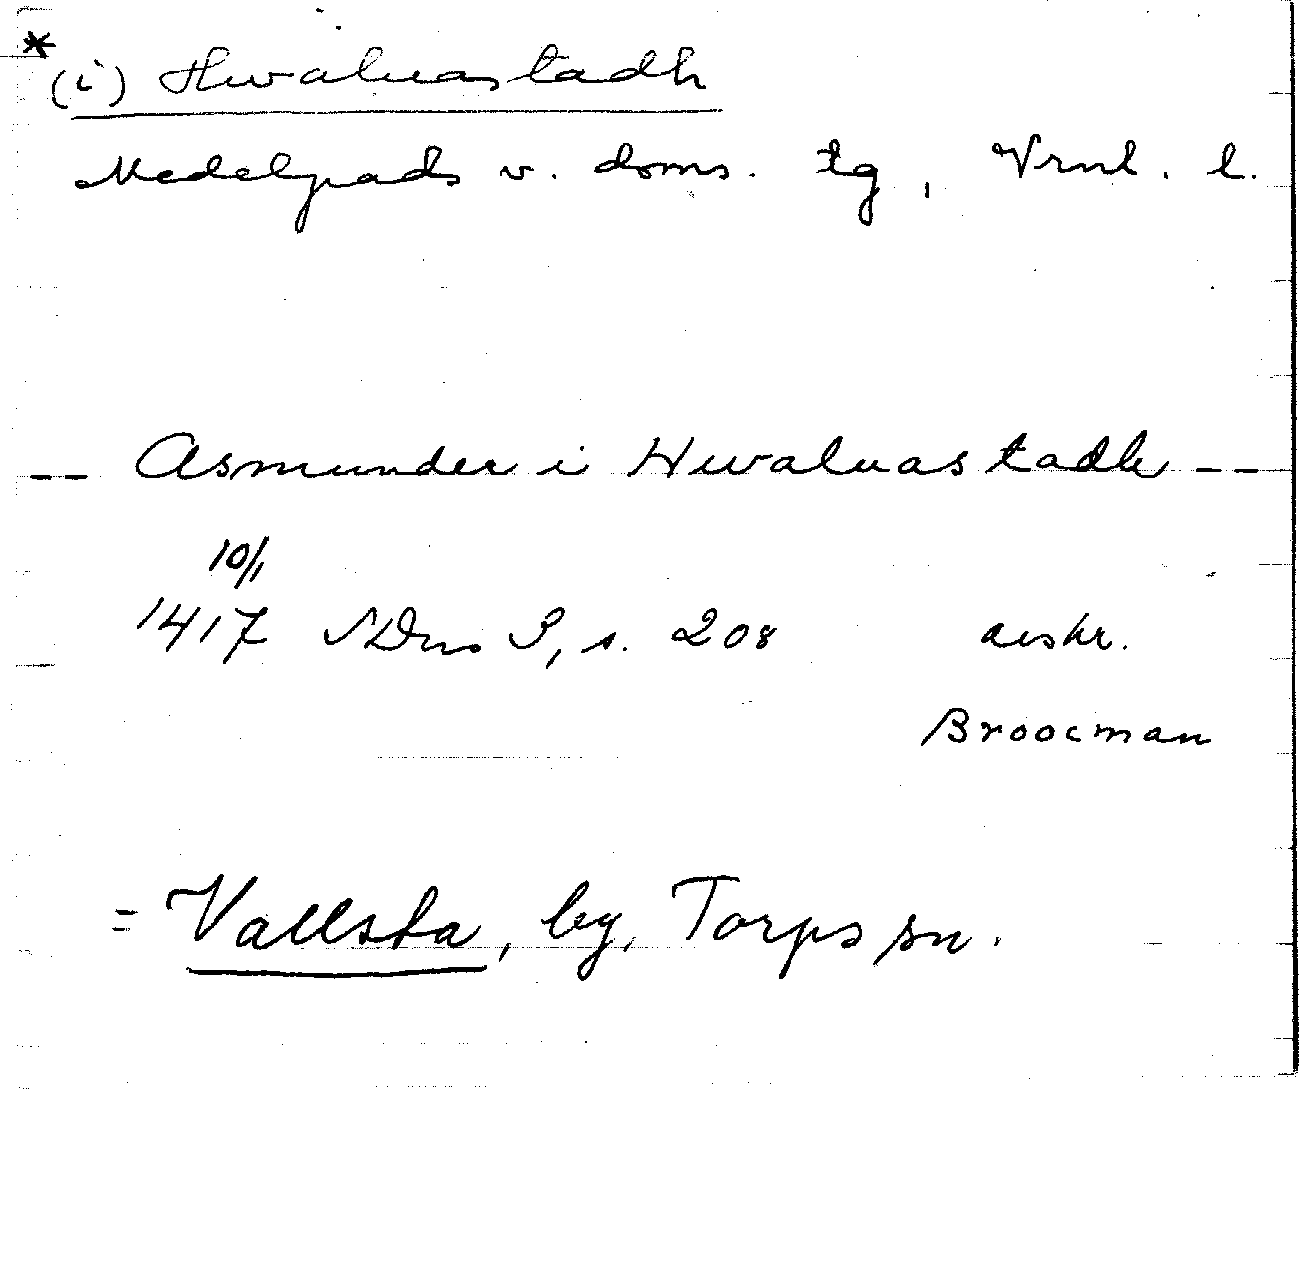 *
(i) Hwaluastadh
Medelpads v. doms. tg, Vrnl. l.
-- Asmunder i Hwaluastadh --
10/1
1417 SDns 3, s. 208 avskr.
Broocman
= Vallsta, by, Torps sn.